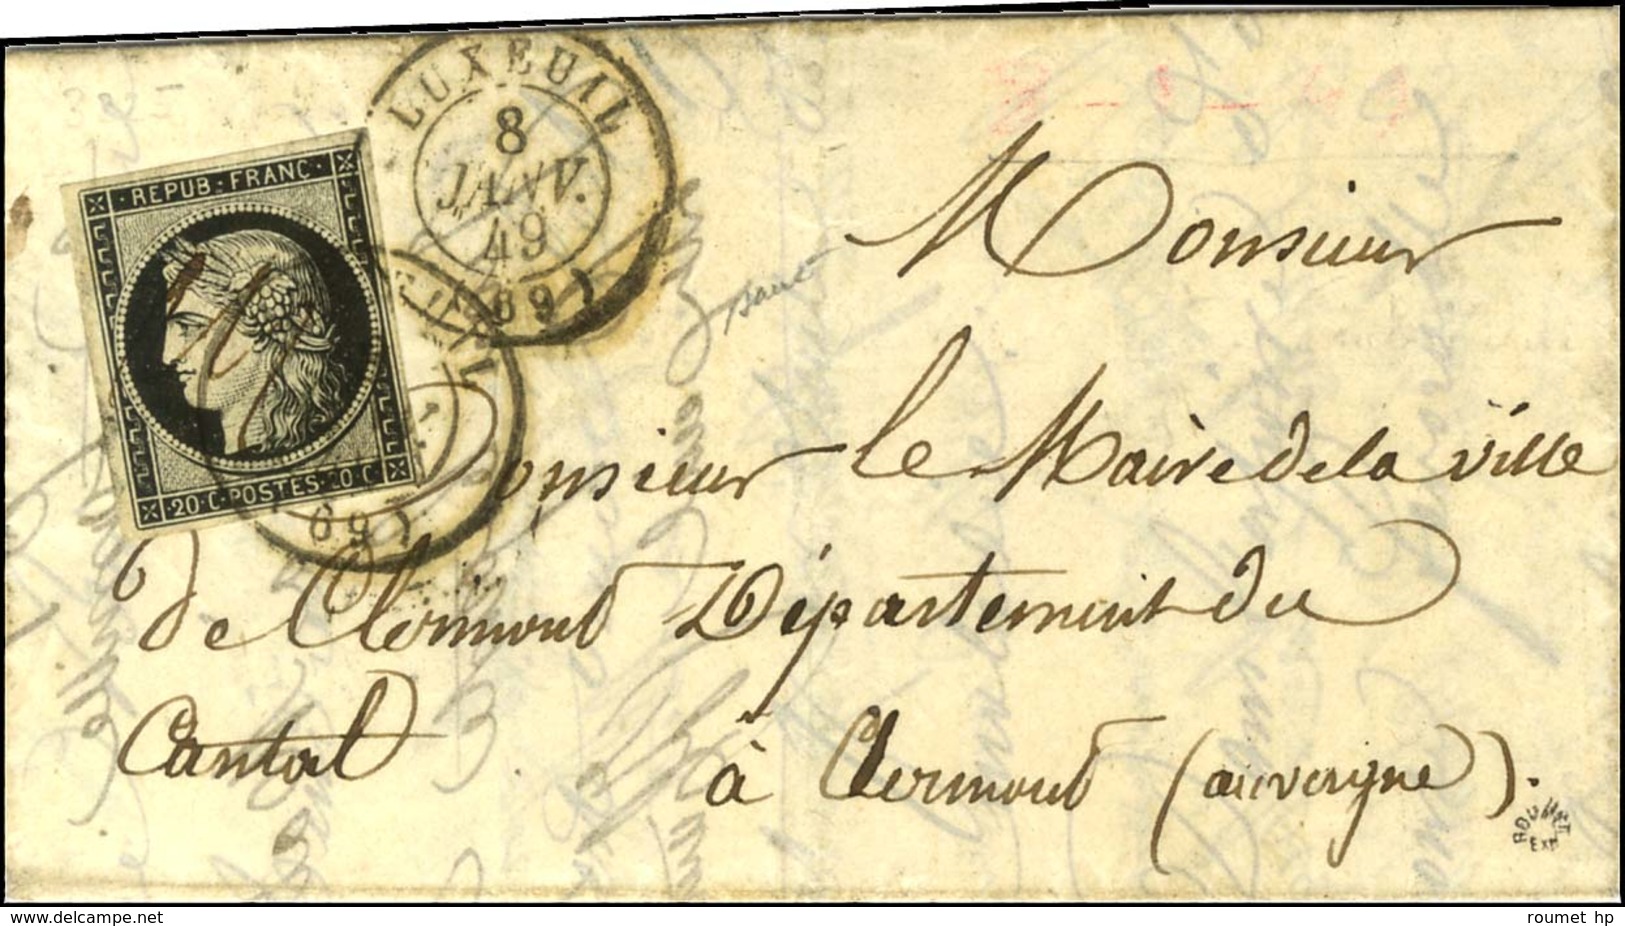 LUXEUAL
8
JANV.
49
(69)
REPUB. FRANC.
20. C. POSTES. 20. C.
(69)
Monsieur
Monsieur le Maire de la ville
de Clermont Département du
Cantal
à Clermont (auvergne).
ROUMET
EXP
delcampe.net
roumet hp